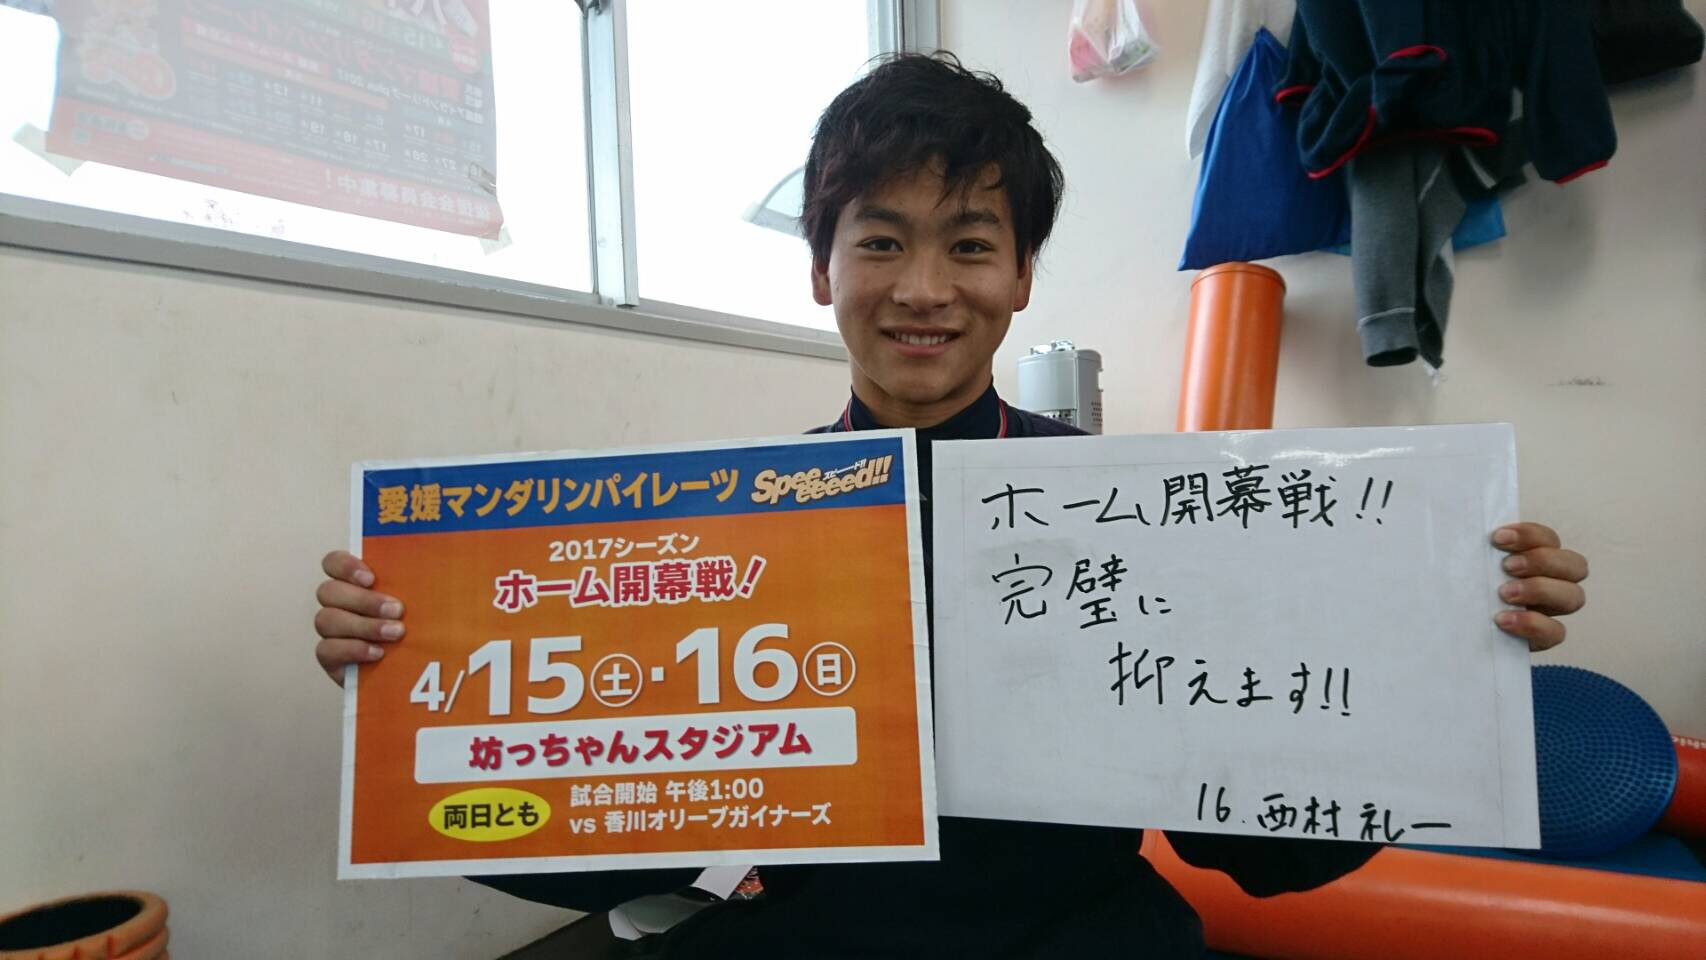 愛媛マンダリンパイレーツ
スピーード!!
Speeeeeeed!!
2017シーズン
ホーム開幕戦!
4/15(土)・16(日)
坊っちゃんスタジアム
両日とも
試合開始 午後1:00
vs 香川オリーブガイナーズ
ホーム開幕戦!!
完璧に
抑えます!!
16. 西村 礼一